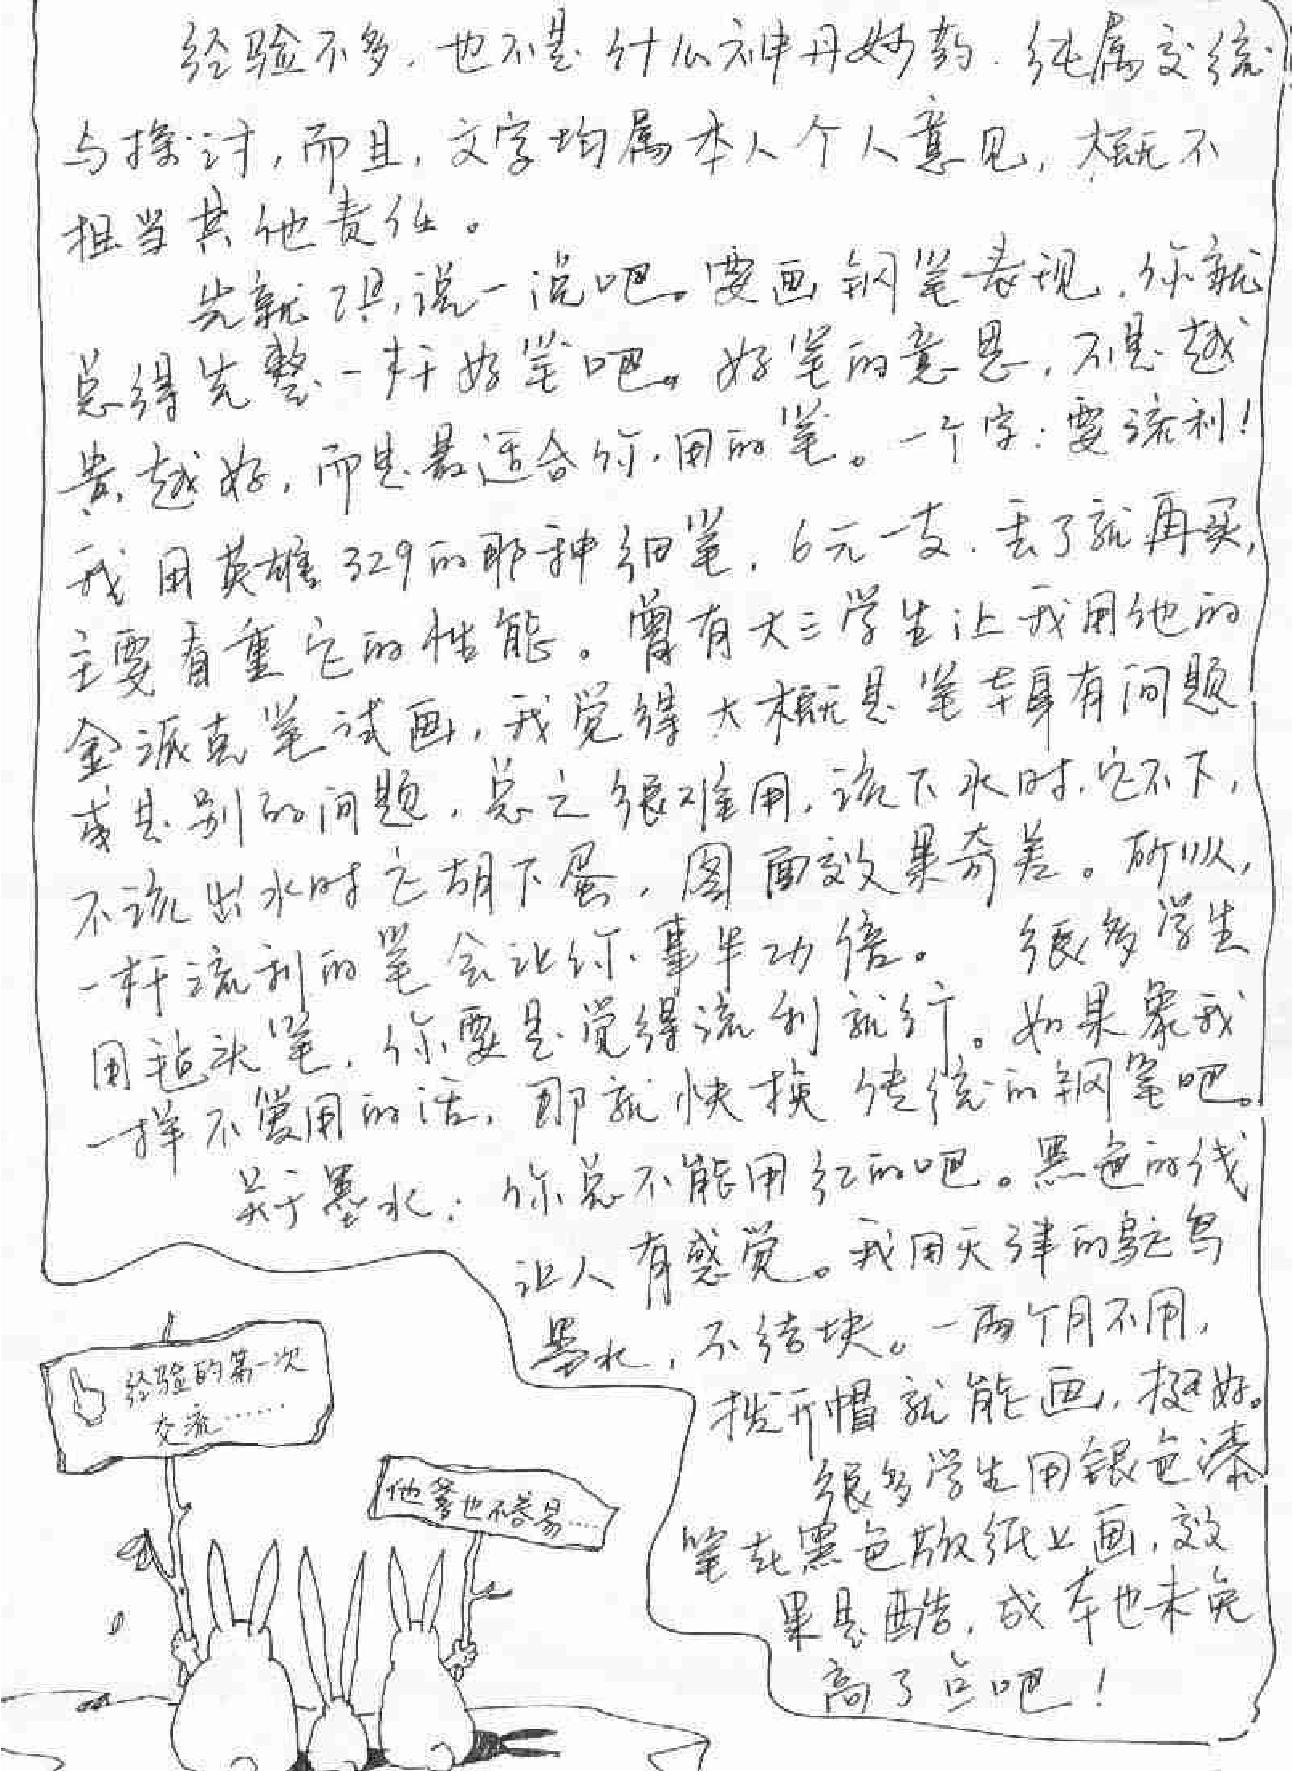 经验不多，也不是什么神丹妙药，纯属交流
与探讨，而且，文字均属本人个人意见，概不
担当其他责任。
先就工具说一说吧。要画钢笔表现，你就
总得先整一杆好笔吧。好笔的意思，不是越
贵越好，而是最适合你用的笔。一个字：要流利！
我用英雄329的那种细笔，6元一支，丢了就再买，
主要看重它的性能。曾有大三学生让我用他的
金派克笔试画，我觉得大概是笔本身有问题
或其别的问题，总之很难用，该下水时，它不下，
不该出水时它胡下蛋，图面效果奇差。所以，
一杆流利的笔会让你事半功倍。 很多学生
用毡头笔，你要是觉得流利就行。如果象我
一样不爱用的话，那就快换传统的钢笔吧。
关于墨水：你总不能用红的吧。黑色的线
让人有感觉。我用天津的鸵鸟
墨水，不结块。一两个月不用，
拔开帽就能画，挺好。
很多学生用银色漆
笔在黑色散纸上画，效
果是酷，成本也未免
高了点吧！
经验的第一次
交流……
他爹也不容易……